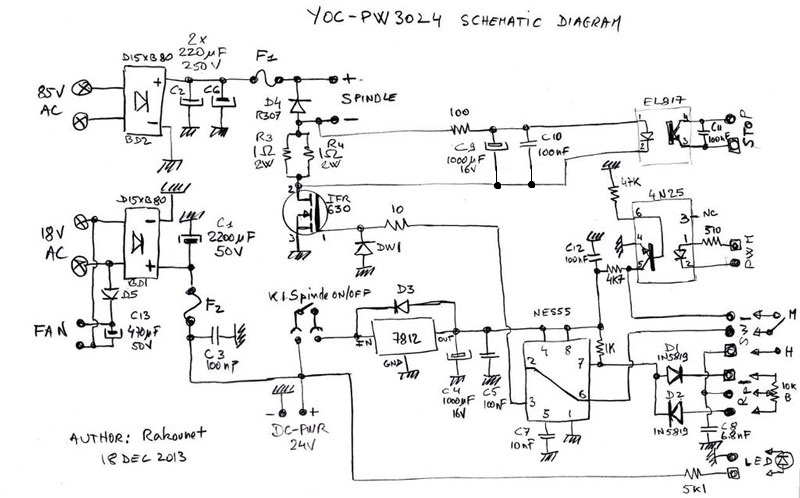 YOC-PW3024 SCHEMATIC DIAGRAM
D15XB80
2x
220µF
250V
F1
85V
AC
+
-
C2
C6
BD2
+
SPINDLE
-
D4
R307
R3
1Ω
2W
R4
1Ω
2W
100
C9
1000µF
16V
C10
100nF
EL817
1
2
4
3
C11
100nF
STOP
2
IFR
630
3
1
10
DW1
47K
4N25
6
3
NC
4
5
1
2
510
PWM
C12
100nF
4K7
D15XB80
18V
AC
-
+
BD1
C1
2200µF
50V
D5
C13
470µF
50V
FAN
F2
C3
100nF
K1.Spinde ON/OFF
D3
IN
7812
OUT
GND
C4
1000µF
16V
C5
100nF
NE555
4
8
2
7
3
6
5
1
C7
10nF
1K
D1
1N5819
D2
1N5819
M
SW1
H
RP1
10K
B
C8
6.8nF
LED
5K1
-
+
DC-PWR
24V
AUTHOR: Rakounet
18 DEC 2013